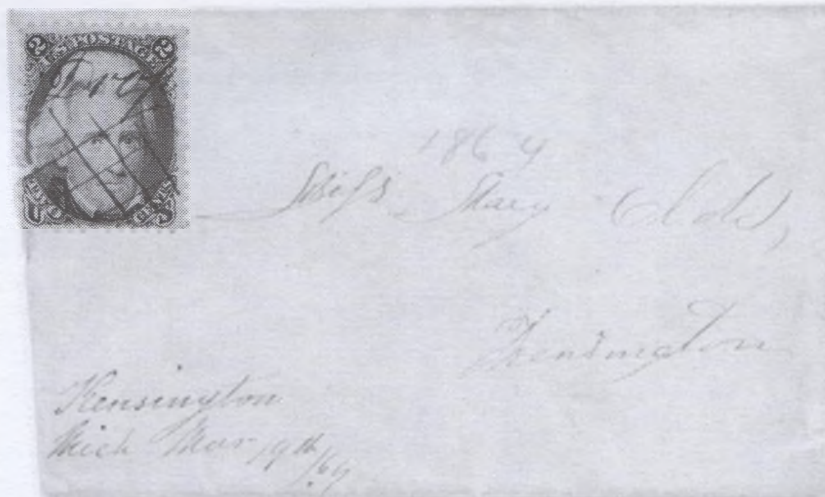 2 U.S. POSTAGE 2
TWO CENTS
1864
Miss Mary
Kensington
Kensington
Mich Mar 19th /64